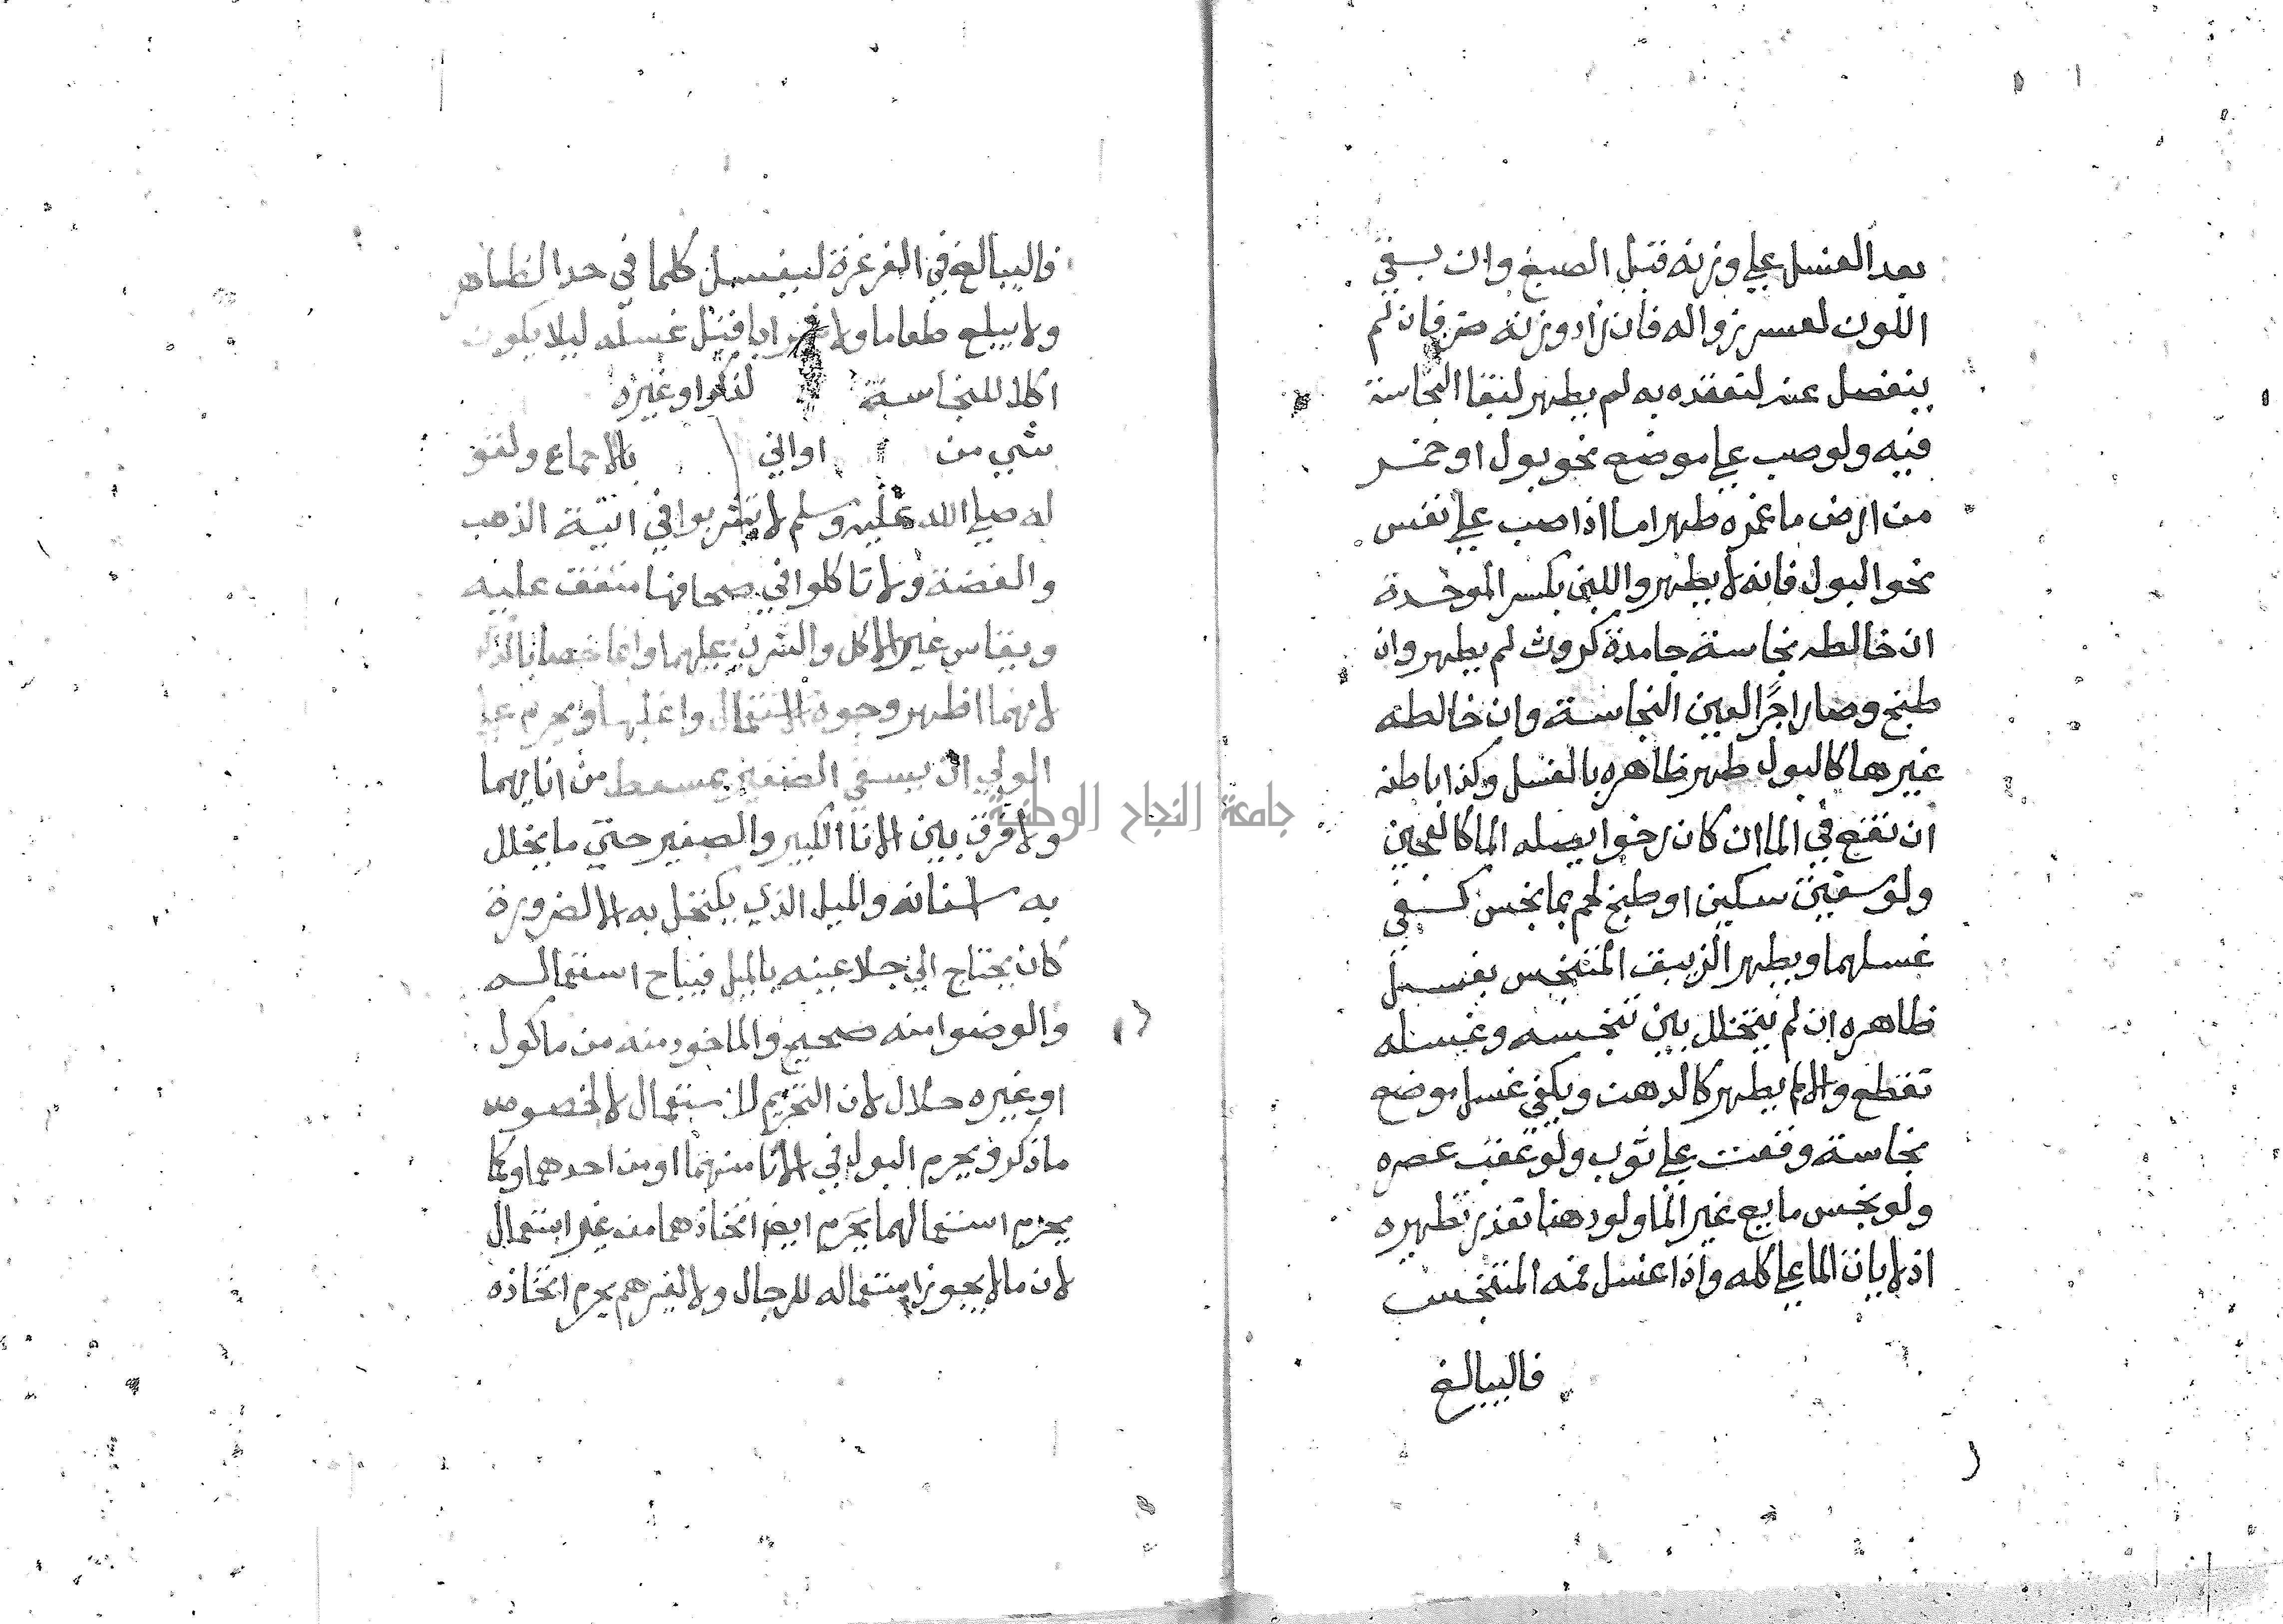 بعد الغسل علي وزنه قبل الصبغ وان بقي
اللون لعسر زواله فان زاد وزنه ضر فان لم
ينفصل عنه لتعقده به لم يطهر لبقا النجاسة
فيه ولو صب علي موضع نحو بول او خمر
من ارض ما غمره طهر اما اذا صب علي نفس
نحو البول فانه لا يطهر واللبن بكسر الموحدة
ان خالطه نجاسة جامدة كروث لم يطهر وان
طبخ وصار اجرًّا لعين النجاسة وان خالطه
غيرها كالبول طهر ظاهره بالغسل وكذا باطنه
ان نقع في الما ان كان رخوا يصله الما كالعجين
ولو سقيت سكين او طبخ لحم بما نجس كفي
غسلهما ويطهر الزيبق المتنجس بغسل
ظاهره ان لم يتخلل بين تنجسه وغسله
تقطع والا لم يطهر كالدهن ويكفي غسل موضع
نجاسة وقعت علي ثوب ولو عقب عصره
ولو نجس مايع غير الما ولو دهنا تعذر تطهيره
اذ لا ياتي الما علي كله واذا غسل فمه المتنجس
فاليبالغ
فاليبالغ في الغرغرة ليغسل كلما في حد الظاهر
ولا يبلع طعاما ولا شرابا قبل غسله ليلا يكون
اكلا للنجاسة لذكر او غيره
شي من اواني بالاجماع ولقو
له صلي الله عليه وسلم لا تشربوا في انية الذهب
والفضة ولا تاكلوا في صحافها متفق عليه
ويقاس غير الاكل والشرب عليهما وانما خصا بالذكر
لانهما اظهر وجوه الاستعمال واغلبها ويحرم علي
الولي ان يسقي الصغير بمسعط من انايهما
جامعة النجاح الوطنية
ولا فرق بين الانا الكبير والصغير حتي ما يخلل
به اسنانه والميل الذي يكتحل به الا لضرورة
كان يحتاج الي جلا عينه بالميل فيباح استعماله
والوضوا منه صحيح والماخوذ منه من ماكول
او غيره حلال لان التحريم للاستعمال لا لخصوص
ما ذكر ويحرم البول في الانا منهما او من احدهما وكما
يحرم استعمالهما يحرم ايضا اتخاذهما من غير استعمال
لان ما لا يجوز استعماله للرجال ولا لغيرهم يحرم اتخاذه